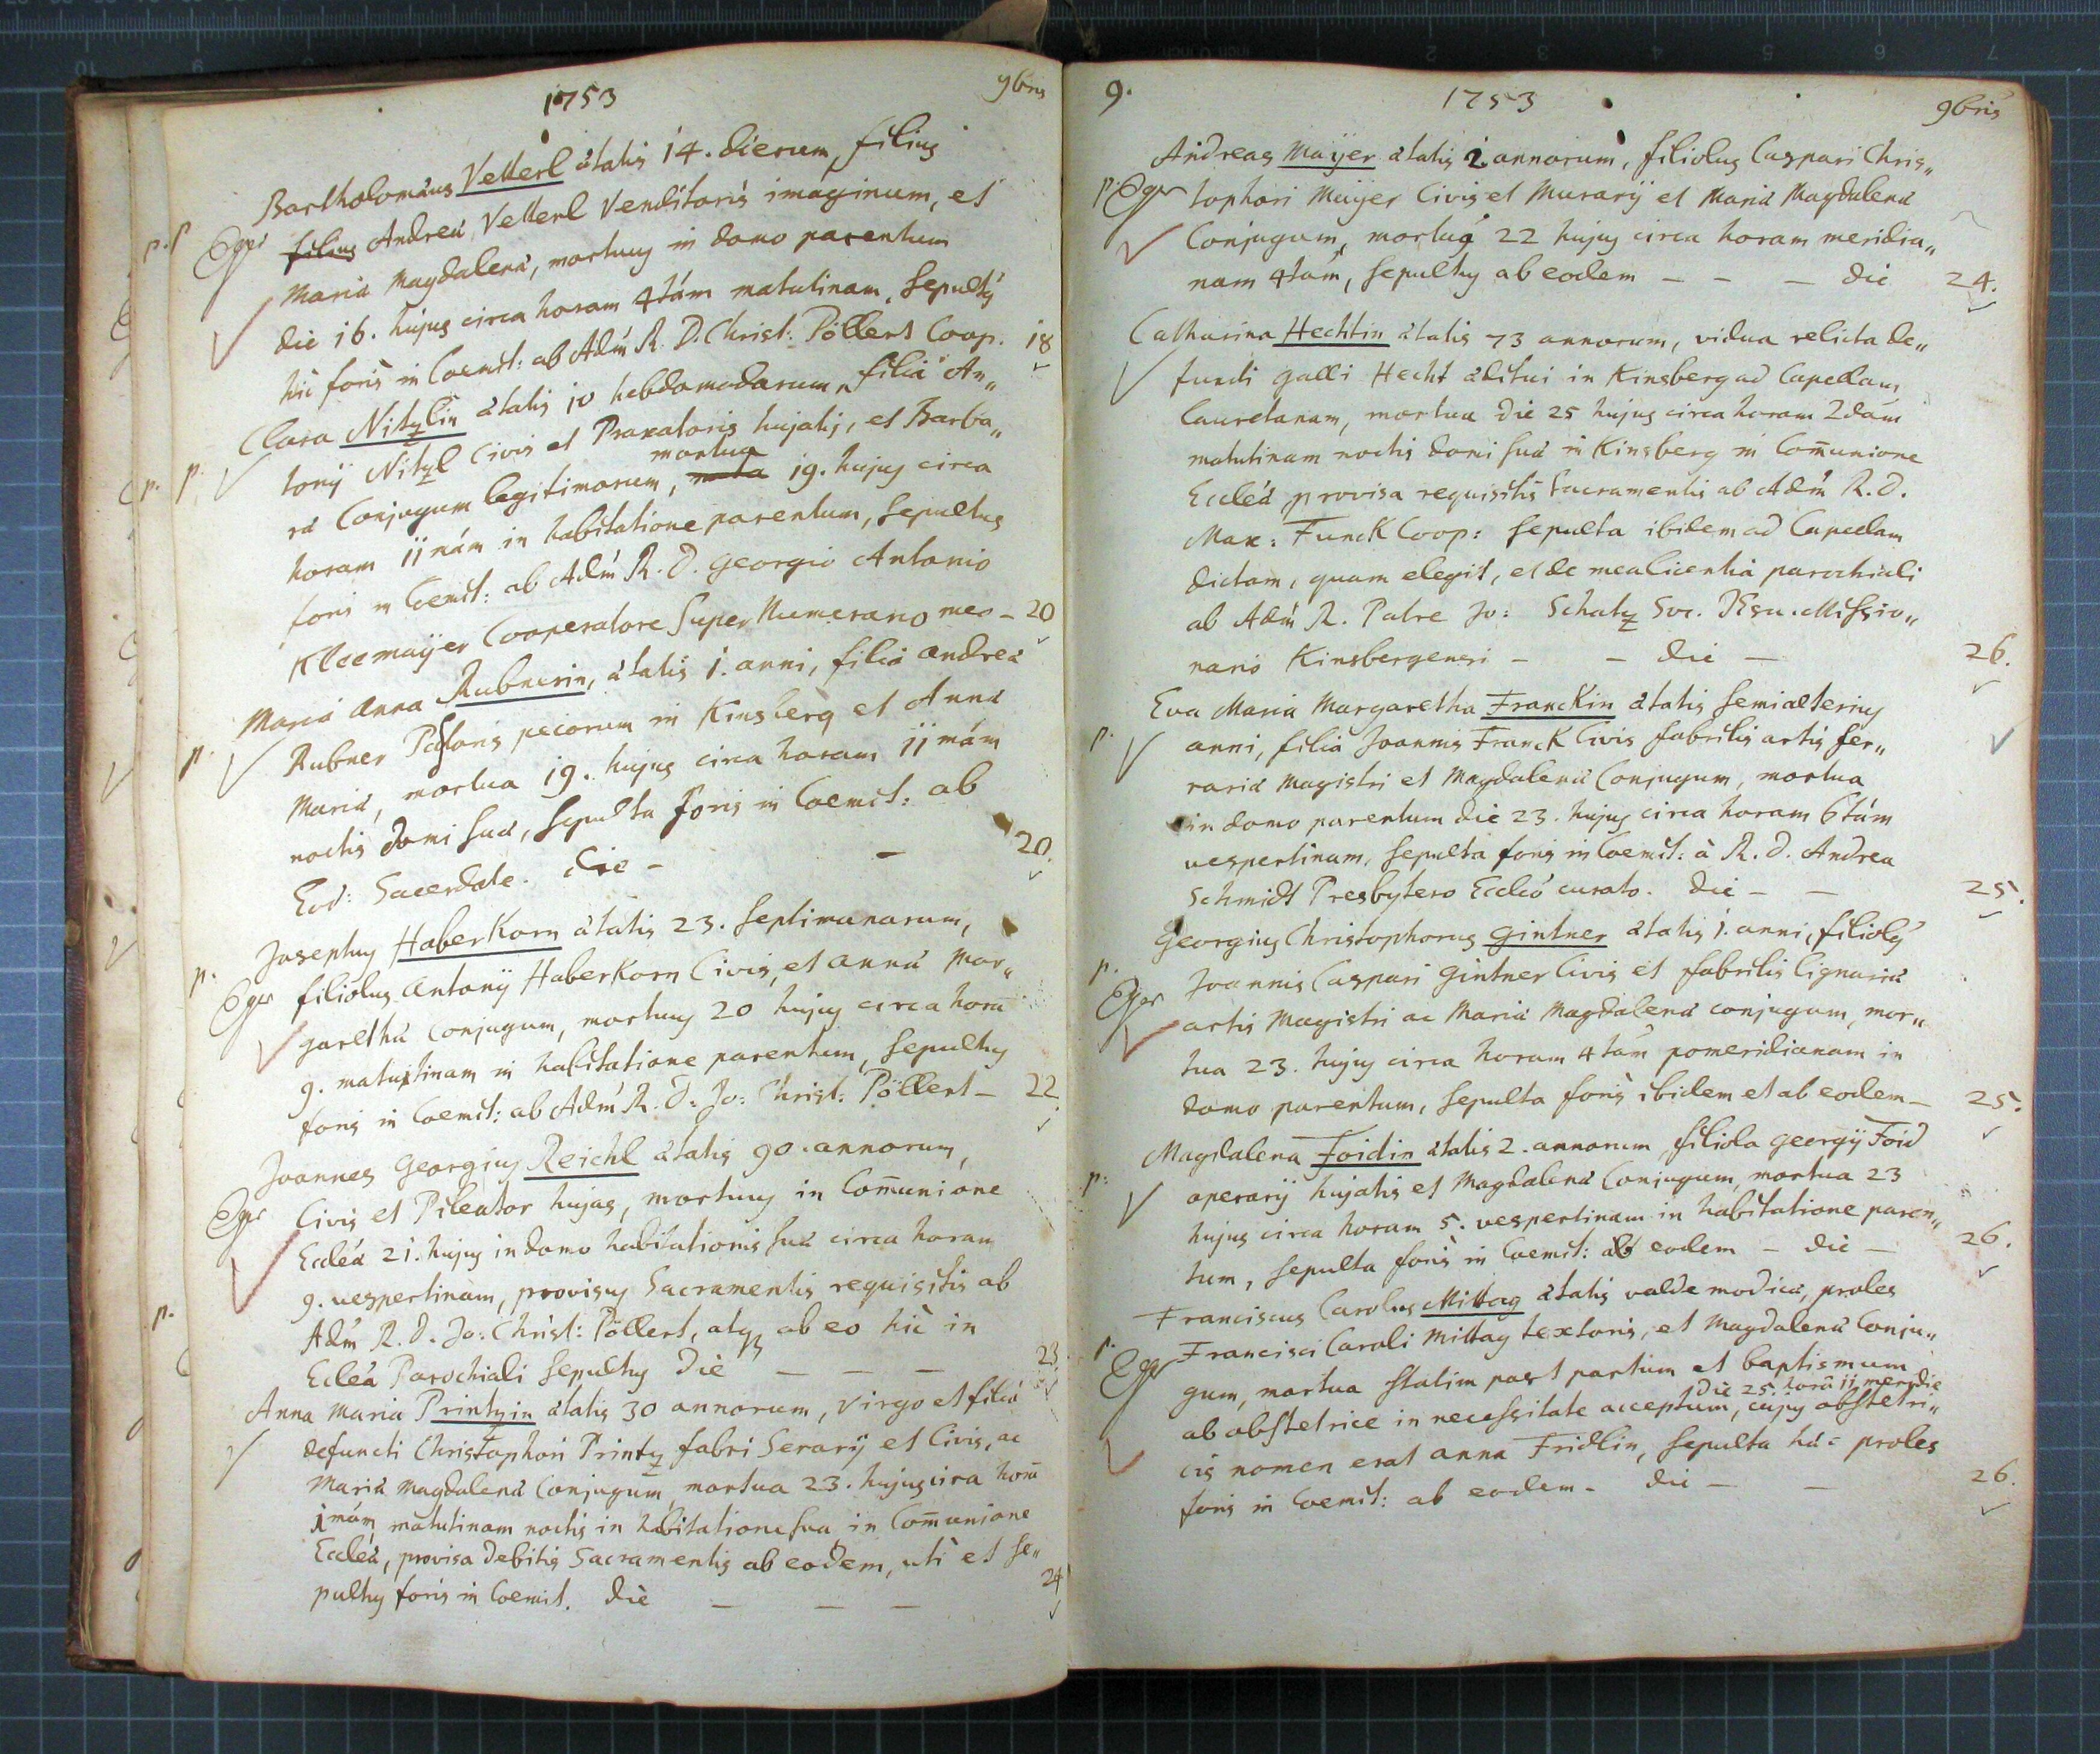 1753 9bris
Bartholomæus Vetterl ætatis 14. dierum filius
p. Eger filius Andreæ Vetterl Venditoris imaginum, et
Mariæ Magdalenæ, mortuus in domo parentum
die 16. hujus circa horam 4tám matutinam, sepultus
hic foris in Coemit: ab Adm̄ R. D. Christ: Pöllert Coop. 18
Clara Nitzlin ætatis 10 hebdomadarum, filia An„
p. tonÿ Nitzl Civis et Praxatoris hujatis, et Barba„
ræ Conjugum legitimorum, nata mortua 19. hujus circa
horam 11mám in habitatione parentum, sepultus
foris in Coemit: ab Adm̄ R. D. Georgio Antonio
Kleemaÿer Cooperatore Super Numerario meo – 20
Maria Anna Rubnerin, ætatis 1. anni, filia Andreæ
p. Rubner Pastoris pecorum in Kinsberg et Annæ
Mariæ, mortua 19. hujus circa horam 11mám
noctis domi suæ, sepulta foris in Coemit: ab
Eod: Sacerdote. Die – – 20.
Josephus HaberKorn ætatis 23. septimanarum,
p. Eger filiolus Antonÿ HaberKorn Civis, et Annæ Mar„
garethæ conjugum, mortuus 20 hujus circa horā
9. matutinam in habitatione parentum, sepultus
foris in Coemit: ab Adm̄ R. D. Jo: Christ: Pöllert – 22.
Joannes Georgius Reichl ætatis 90. annorum,
Eger Civis et Pileator hujas, mortuus in Com̄unione
Eccleæ 21. hujus in domo habitationis suæ circa horam
9. vespertinam, provisus Sacramentis requisitis ab
p. Adm̄ R. D. Jo: Christ: Pöllert, atq; ab eo hic in
Ecleâ Parochiali sepultus Die – – – 23.
Anna Maria Printzin ætatis 30 annorum, virgo et filia
defuncti Christophori Printz fabri Serarÿ et Civis, ac
Mariæ Magdalenæ Conjugum, mortua 23. hujus circa horā
1mám matutinam noctis in habitatione sua in Com̄unione
Eccleæ, provisa debitis Sacramentis ab eodem, uti et se„
pultus foris in Coemit. Die – – – 24
9. 1753 9bris
Andreas Maÿer ætatis 2. annorum, filiolus Caspari Chris„
p. Eger tophori Maÿer Civis et Murarÿ et Mariæ Magdalenæ
Conjugum, mortuus 22 hujus circa horam meridia„
nam 4tám, sepultus ab eodem – – – die 24.
Catharina Hechtin ætatis 73 annorum, vidua relicta de„
functi Galli Hecht æditui in Kinsberg ad Capellam
Lauretanam, mortua die 25 hujus circa horam 2dám
matutinam noctis domi suæ in Kinsberg in Com̄unione
Eccleæ, provisa requisitis Sacramentis ab Adm̄ R. D.
Max: Funck Coop: sepulta ibidem ad Capellam
dictam, quam elegit, et de mea licentia parochiali
ab Adm̄ R. Patre Jo: Schatz Soc. JEsu. Missio„
nario Kinsbergensi – – die – 26.
Eva Maria Margaretha Franckin ætatis semialterius
p. anni, filia Joannis Franck Civis fabrilis artis fer„
rariæ Magistri et Magdalenæ Conjugum, mortua
in domo parentum die 23. hujus circa horam 6tám
vespertinam, sepulta foris in Coemit: à R. D. Andrea
Schmidt Presbytero Eccleo curato. Die – – 25.
Georgius Christophorus Gintner ætatis 1. anni, filiolus
p. Eger Joannis Caspari Gintner Civis et fabrilis lignariæ
artis Magistri ac Mariæ Magdalenæ conjugum, mor„
tua 23. hujus circa horam 4tám pomeridianam in
domo parentum, sepulta foris ibidem et ab eodem – 25.
Magdalena Foidin ætatis 2. annorum, filiola Georgÿ Foid
p. operarÿ hujatis et Magdalenæ Conjugum, mortua 23
hujus circa horam 5. vespertinam in habitatione paren„
tum, sepulta foris in Coemit: ab eodem – die – 26.
Franciscus Carolus Mittag ætatis valde modicæ, proles
p. Eger Francisci Caroli Mittag textoris, et Magdalenæ Conju„
gum, mortua statim post partum et baptismum
die 25. horā 11 meridie
ab obstetrice in necessitate acceptum, cujus obstetri„
cis nomen erat Anna Fridlin, sepulta hæc proles
foris in Coemit: ab eodem – die – – 26.